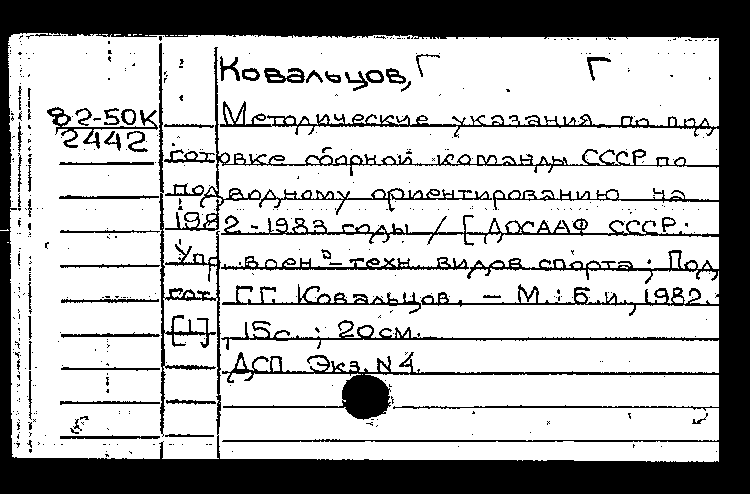 Ковальцов, Г Г
82-50К
2442
Методические указания по под
готовке сборной команды СССР по
подводному ориентированию на
1982-1983 годы / [ДОСААФ СССР.
Упр. воен.-техн. видов спорта; Под
гот. Г.Г. Ковальцов. - М.: Б.и., 1982.-
[1], 15с.; 20см.
ДСП Экз. N 4.